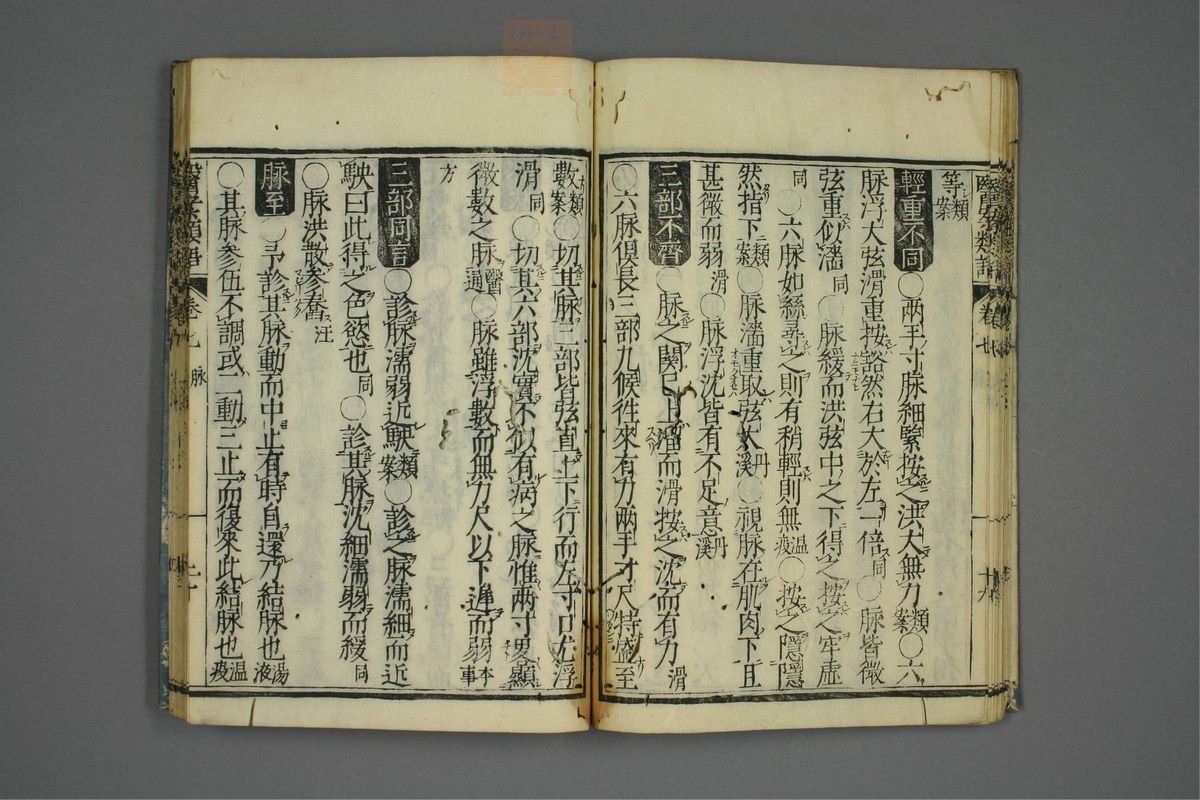 等類案
輕重不同○兩手寸脉細緊按之洪大無力類案○六
脉浮大弦滑重按豁然右大於左一倍同○脉皆微
弦重似濇同○脉緩而洪弦中之下得之按之牢虛
同○六脉如絲尋之則有稍輕則無温疫○按之隱隱
然指下類案○脉濇重取弦大丹溪○視脉在肌肉下且
甚微而弱滑○脉浮沈皆有不足意丹溪
三部不齊○脉之関尺上溜而滑按之沈而有力滑
○六脉俱長三部九候徃來有力兩手寸尺特盛至
數類案○切其脉三部皆弦直上下行而左寸口尤浮
滑同○切其六部沈實不似有病之脉惟兩寸畧顯
微數之脉醫通○脉雖浮數而無力尺以下遲而弱本事
方
三部同言○診脉濡弱近駃類案○診之脉濡細而近
駃曰此得之色慾也同○診其脉沈細濡弱而緩同
○脉洪散參舂汪
脉至○予診其脉動而中止有時自還乃結脉也湯液
○其脉參伍不調或二動三止而復來此結脉也温疫
醫學類語 卷七 脉